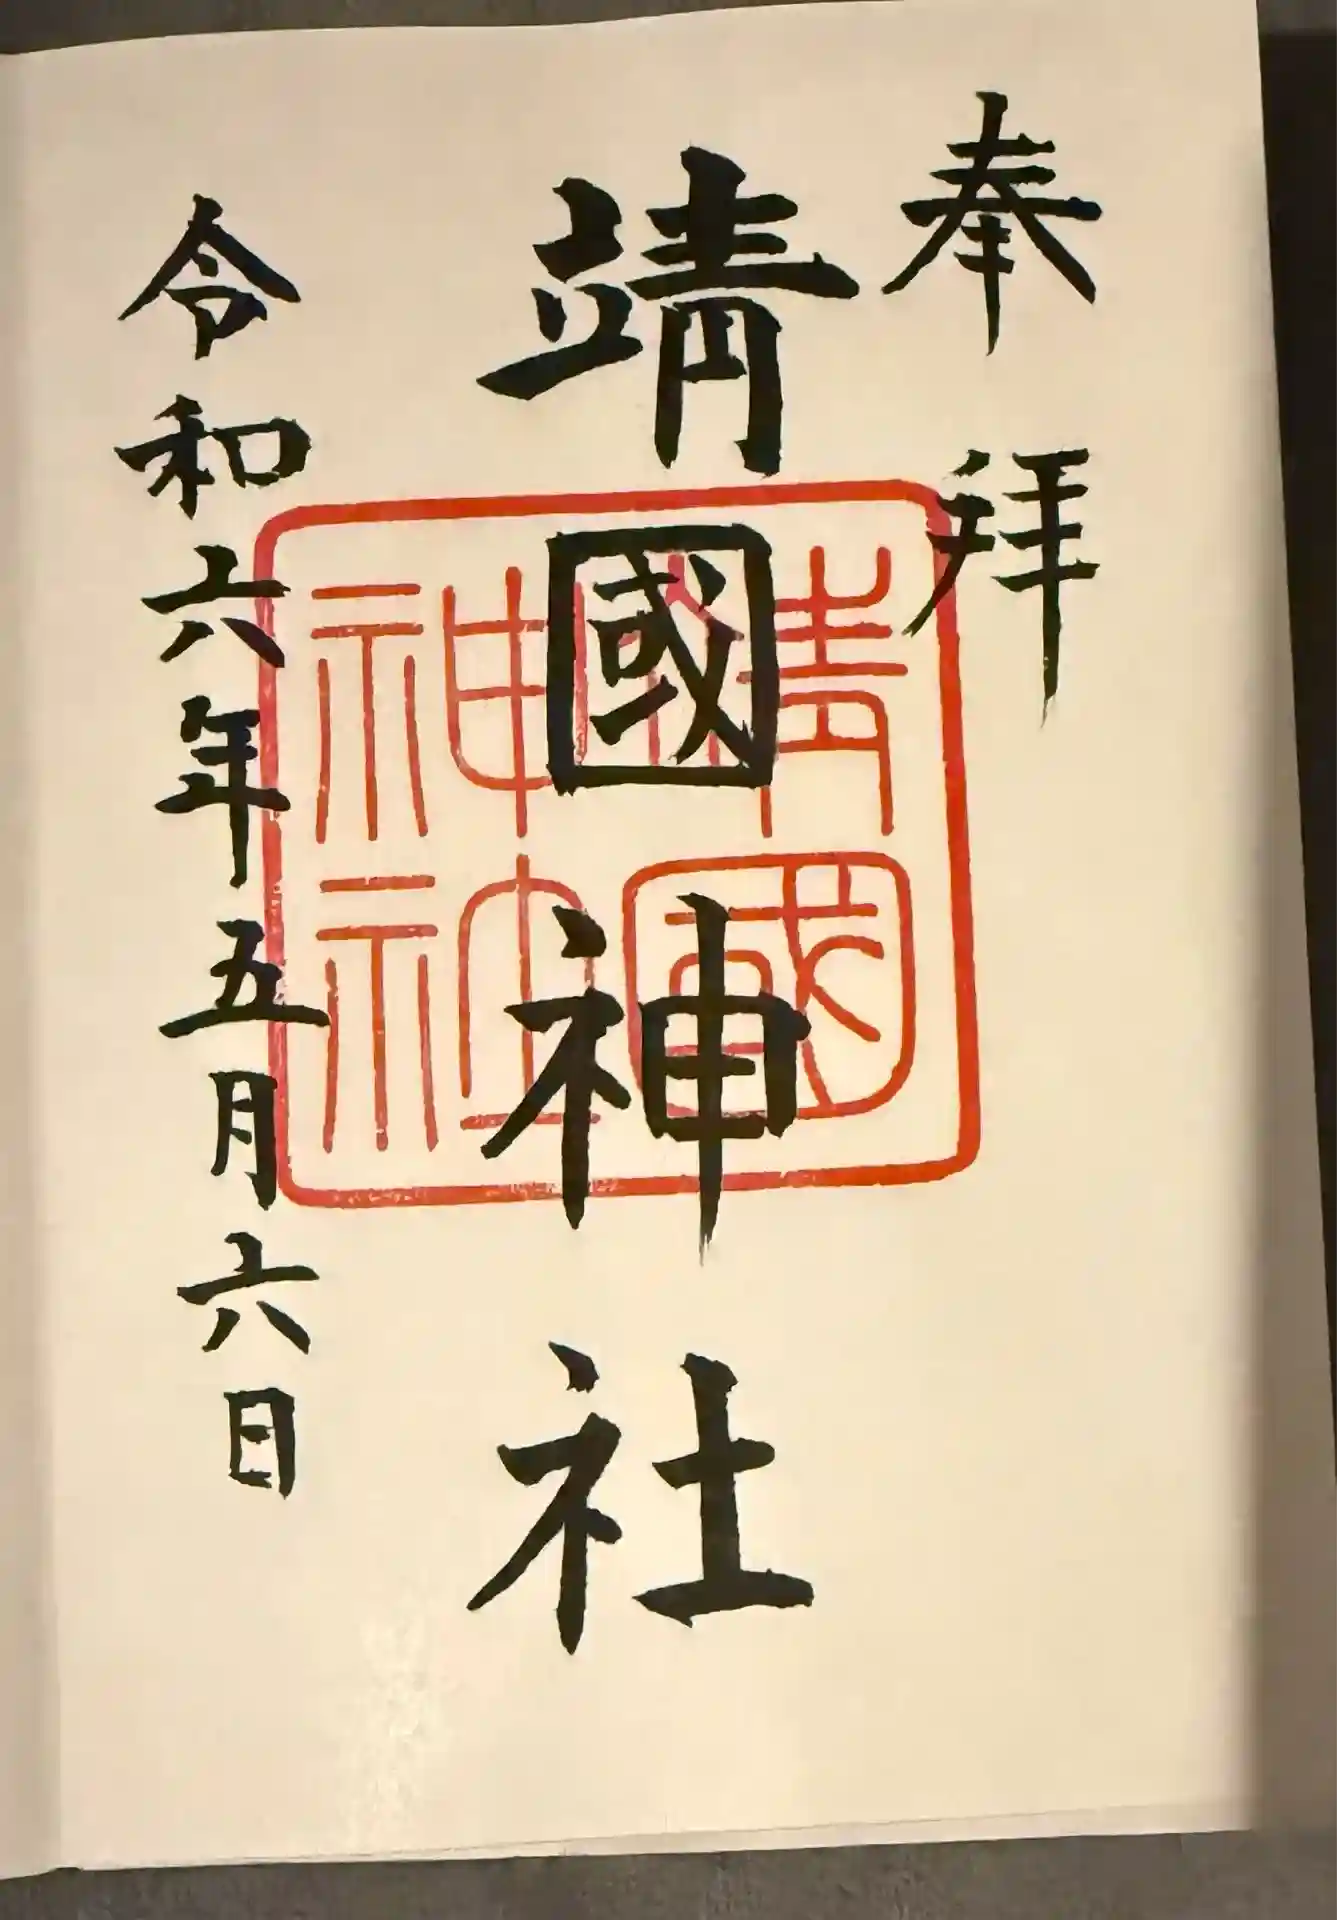 奉拝
靖國神社
靖國
神社
令和六年五月六日